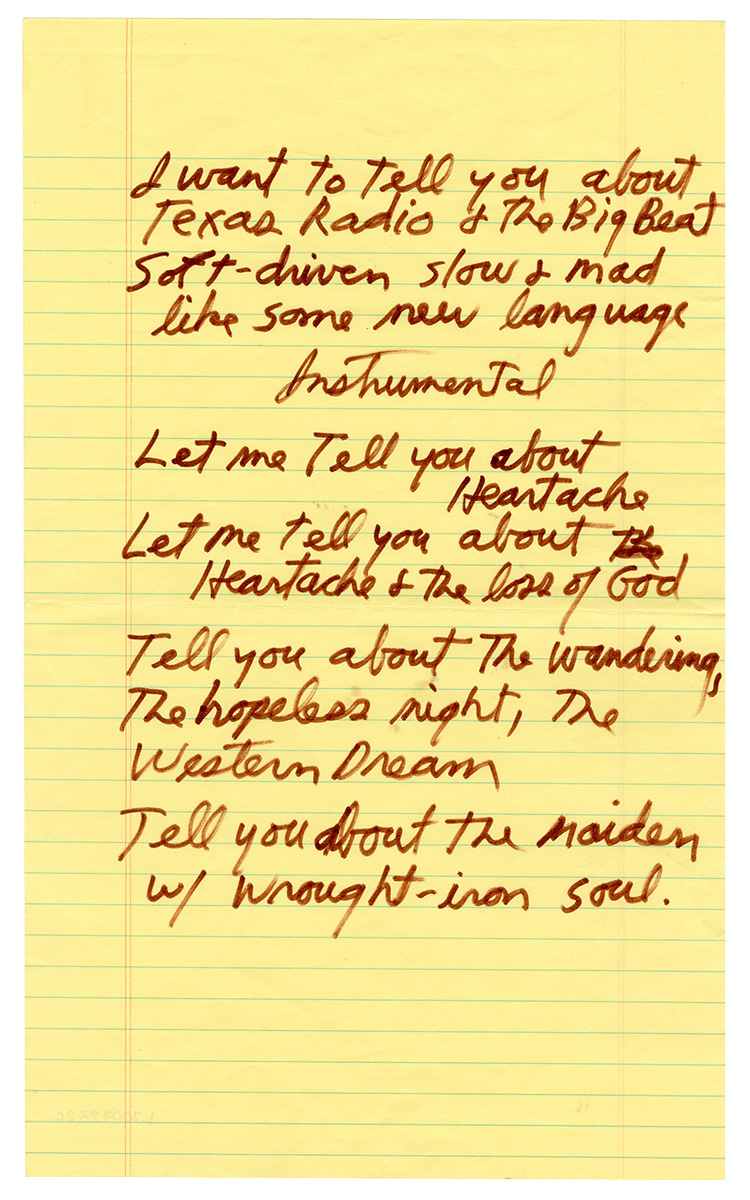 I want to tell you about
Texas Radio & The Big Beat
Soft-driven slow & mad
like some new language
Instrumental
Let me Tell you about
Heartache
Let me tell you about the
Heartache & the loss of God
Tell you about The wandering,
The hopeless night, The
Western Dream
Tell you about the maiden
w/ wrought-iron soul.